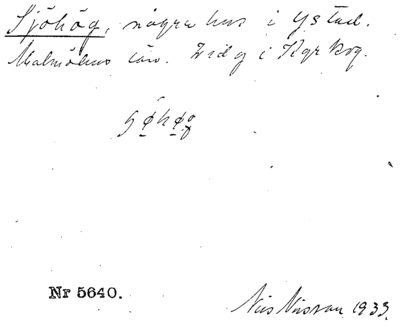 Sjöhög, några hus i Ystad.
Malmöhus län. Ej i Kyrkog.
Nr 5640.
Nils Nilsson 1933.